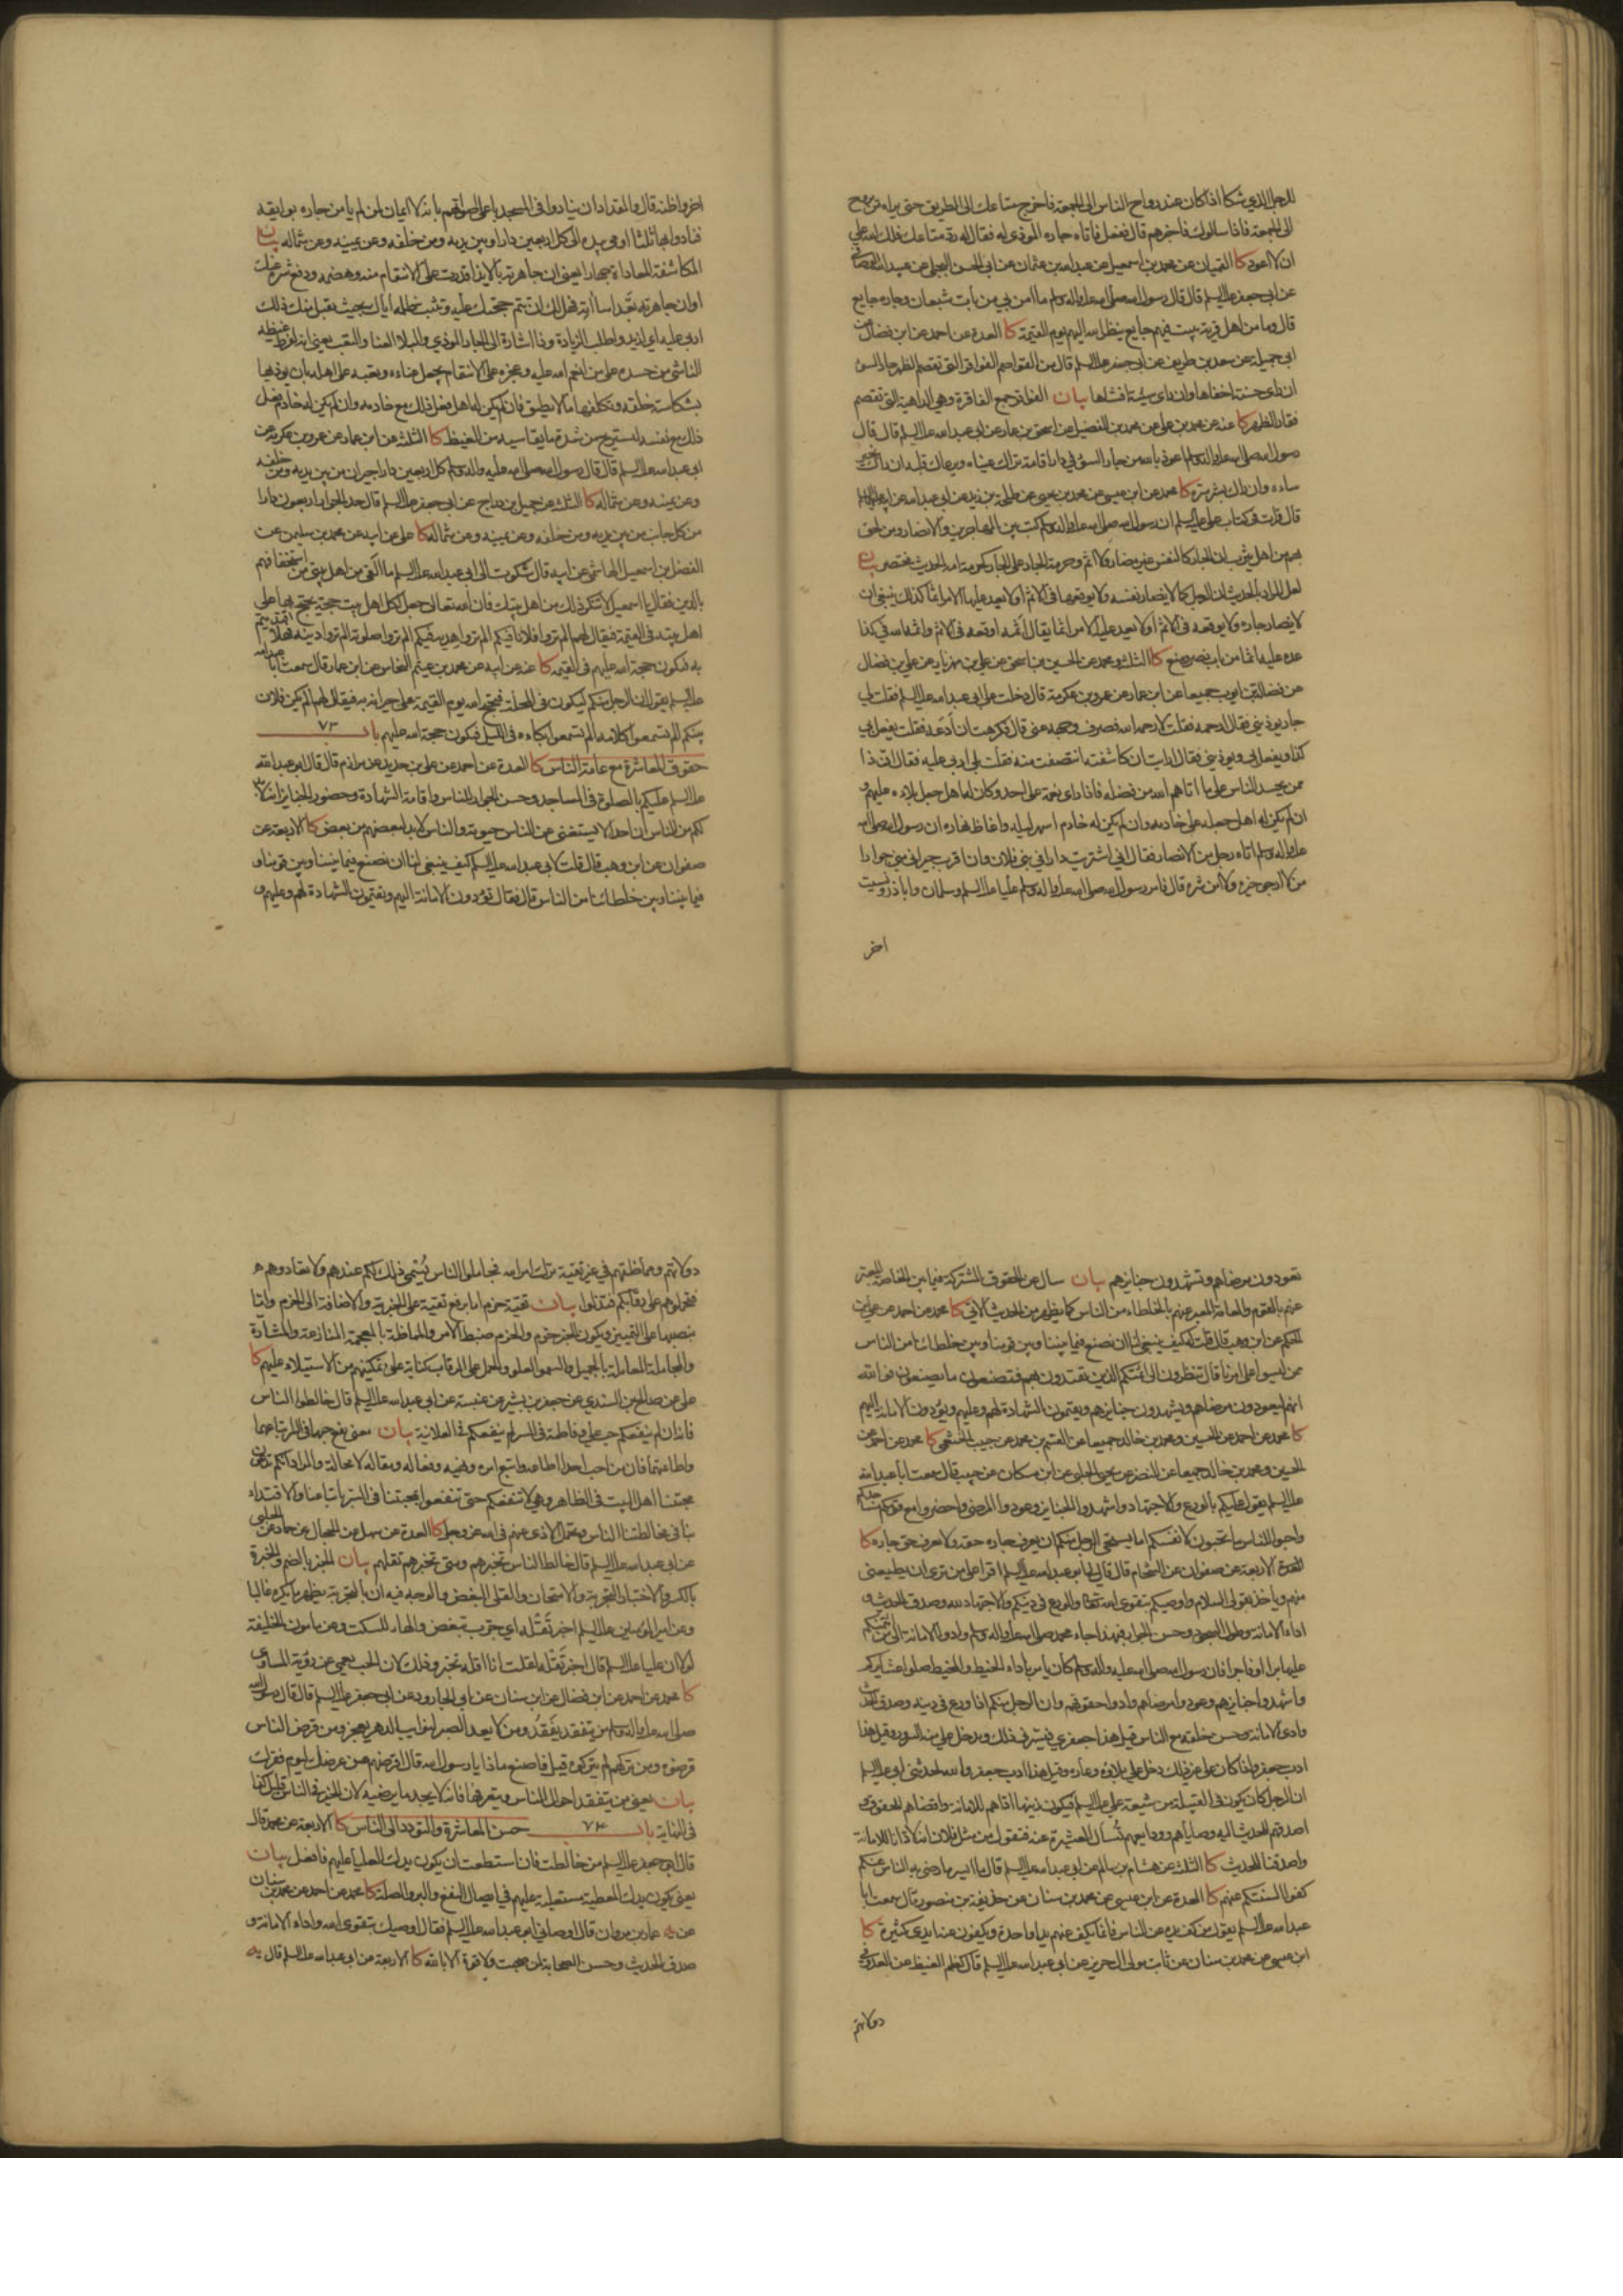 للرجل الذي شكا اذا كان عند رواح الناس الى الجمعة فاخرج متاعك الى الطريق حتى يراه من يروح
الى الجمعة فاذا سألوك فاخبرهم قال ففعل فأتاه جاره الموذي له فقال له رد متاعك فلك الله علي
ان لا اعود كا القميان عن محمد بن اسمعيل عن عبدالله بن عثمان عن ابي الحسن البجلي عن عبيدالله الوصافي
عن ابي جعفر عليه السلم قال قال رسول الله صلى الله عليه واله وسلم ما امن بي من بات شبعان وجاره جايع
قال وما من اهل قرية يبيت فيهم جايع ينظر الله اليهم يوم القيمة كا العدة عن احمد عن ابن فضال عن
ابي جميلة عن سعد بن طريف عن ابي جعفر عليه السلم قال من القواصم الفواقر التي تقصم الظهر جار السوء
ان راى حسنة اخفاها وان راى سيئة افشاها بيان الفواقر جمع الفاقرة وهي الداهية التي تقصم
فقار الظهر كا عنه عن محمد بن علي عن محمد بن الفضيل عن اسحق بن عمار عن ابي عبدالله عليه السلم قال قال
رسول الله صلى الله عليه واله وسلم اعوذ بالله من جار السوء في دار اقامة تراك عيناه ويرعاك قلبه ان راك بخير
ساءه وان راك بشر سره كا محمد عن ابن عيسى عن محمد بن يحيى عن طلحة بن زيد عن ابي عبدالله عن ابيه عليهما السلم
قال قرات في كتاب علي عليه السلم ان رسول الله صلى الله عليه واله وسلم كتب بين المهاجرين والانصار ومن لحق
بهم من اهل يثرب ان الجار كالنفس غير مضار ولا اثم وحرمة الجار على الجار كحرمة امه الحديث مختصر بيان
لعل المراد بالحديث ان الرجل كما لا يضار نفسه ولا يوقعها في الاثم او لا يعد عليها الامر اثما كذلك ينبغي ان
لا يضار جاره ولا يوقعه في الاثم او لا يعد عليه الامر اثما يقال اثمه اوقعه في الاثم واثمه الله في كذا
عده عليه اثما من باب نصر ومنع كا الثلثة ومحمد عن الحسين بن اسحق عن علي بن مهزيار عن علي بن فضال
عن فضالة بن ايوب جميعا عن ابن عمار عن عمرو بن عكرمة قال دخلت على ابي عبدالله عليه السلم فقلت لي
جار يوذيني فقال ارحمه فقلت لا رحمه الله فصرف وجهه عني قال فكرهت ان أدعه فقلت يفعل بي
كذا ويفعل بي ويوذيني فقال ارايت ان كاشفته انتصفت منه فقلت بلى اربي عليه فقال ان ذا
ممن يحسد الناس على ما اتاهم الله من فضله فاذا راى نعمة على احد وكان له اهل جعل بلاءه عليهم و
ان لم يكن له اهل جعله على خادمه وان لم يكن له خادم اسهر ليله واغاظ نهاره ان رسول الله صلى الله
عليه واله وسلم اتاه رجل من الانصار فقال اني اشتريت دارا في بني فلان وان اقرب جيراني مني جوارا
من لا ارجو خيره ولا امن شره قال فامر رسول الله صلى الله عليه واله وسلم عليا عليه السلم وسلمان وابا ذر ونسيت
اخر
اخر واظنه قال والمقداد ان ينادوا في المسجد باعلى اصواتهم بانه لا ايمان لمن لم يامن جاره بوايقه
فنادوا بها ثلثا ثم اومى بيده الى كل اربعين دارا بين يديه ومن خلفه وعن يمينه وعن شماله بيان
المكاشفة المعاداة جهارا يعني ان جاهرته بالايذا قدرت على الانتقام منه وهضمه ودفع شره عنك
او ان جاهرته بعد اساءته فهل لك ان تتم حجتك عليه وتثبت ظلمه اياك بحيث يقبل منك ذلك
اربي عليه اي ازيد واطلب الزيادة وذا اشارة الى الجار الموذي والبلاء العنا والتعب يعني انه لفرط غيظه
الناشي من حسده على من انعم الله عليه وعجزه على الانتقام يجعل عناءه وتعبه على اهله بان يوذيها
بشكاسة خلقه وتكلفها ما لا يطيق فان لم يكن له اهل فعل ذلك مع خادمه وان لم يكن له خادم فعل
ذلك مع نفسه ليستريح من شدة ما يقاسيه من الغيظ كا الثلثة عن ابن عمار عن عمرو بن عكرمة عن
ابي عبدالله عليه السلم قال قال رسول الله صلى الله عليه واله وسلم كل اربعين دارا جيران من بين يديه ومن خلفه
وعن يمينه وعن شماله كا الثلثة عن جميل بن دراج عن ابي جعفر عليه السلم قال حد الجوار اربعون دارا
من كل جانب من بين يديه ومن خلفه وعن يمينه وعن شماله كا علي عن ابيه عن محمد بن سليمن عن
الفضل بن اسمعيل الهاشمي عن ابيه قال شكوت الى ابي عبدالله عليه السلم ما القى من اهل بيتي من استخفافهم
بالدين فقال يا اسمعيل لا تنكر ذلك من اهل بيتك فان الله تعالى جعل لكل اهل بيت حجة يحتج بها على
اهل بيته في القيمة فيقال لهم الم تروا فلانا فيكم الم تروا هديه فيكم الم تروا صلوته الم تروا دينه فهلا اقتديتم
به فيكون حجة الله عليهم في القيمة كا عنه عن ابيه عن محمد بن عيثم النخاس عن ابن عمار قال سمعت ابا عبدالله
عليه السلم يقول ان الرجل منكم ليكون في المحلة فيحتج الله يوم القيمة على جيرانه به فيقال لهم الم يكن فلان
بينكم الم تسمعوا كلامه الم تسمعوا بكاءه في الليل فيكون حجة الله عليهم باب ٧٣
حقوق المعاشرة مع عامة الناس كا العدة عن احمد عن علي بن حديد عن مرازم قال قال ابو عبدالله
عليه السلم عليكم بالصلوة في المساجد وحسن الجوار للناس واقامة الشهادة وحضور الجنايز انه لا بد
لكم من الناس ان احدا لا يستغني عن الناس حيوته والناس لا بد لبعضهم من بعض كا الاربعة عن
صفوان عن ابن وهب قال قلت لابي عبدالله عليه السلم كيف ينبغي لنا ان نصنع فيما بيننا وبين قومنا و
فيما بيننا وبين خلطائنا من الناس قال فقال تؤدون الامانة اليهم وتقيمون الشهادة لهم وعليهم و
تعودون مرضاهم وتشهدون جنايزهم بيان سال عن الحقوق المشتركة فيما بين الخاصة المعبر
عنهم بالقوم والعامة المعبر عنهم بالخلطاء من الناس كما يظهر من الحديث الاتي كا محمد عن احمد عن علي بن
الحكم عن ابن وهب قال قلت له كيف ينبغي لنا ان نصنع فيما بيننا وبين قومنا وبين خلطائنا من الناس
ممن ليسوا على امرنا قال تنظرون الى ائمتكم الذين تقتدون بهم فتصنعون ما يصنعون فوالله
انهم ليعودون مرضاهم ويشهدون جنايزهم ويقيمون الشهادة لهم وعليهم ويؤدون الامانة اليهم
كا محمد عن احمد عن الحسين ومحمد بن خالد جميعا عن القسم بن محمد عن حبيب الخثعمي كا محمد عن احمد عن
الحسين ومحمد بن خالد جميعا عن النضر عن يحيى الحلبي عن ابن مسكان عن حبيب قال سمعت ابا عبدالله
عليه السلم يقول عليكم بالورع والاجتهاد واشهدوا الجنايز وعودوا المرضى واحضروا مع قومكم مساجدكم
واحبوا للناس ما تحبون لانفسكم اما يستحيي الرجل منكم ان يعرف جاره حقه ولا يعرف حق جاره كا
العدة الاربعة عن صفوان عن الشحام قال قال لي ابو عبدالله عليه السلم اقرا على من ترى انه يطيعني
منهم وياخذ بقولي السلام واوصيكم بتقوى الله تعالى والورع في دينكم والاجتهاد لله وصدق الحديث و
اداء الامانة وطول السجود وحسن الجوار فبهذا جاء محمد صلى الله عليه واله وسلم وادوا الامانة الى من ائتمنكم
عليها برا او فاجرا فان رسول الله صلى الله عليه واله وسلم كان يامر باداء الخيط والمخيط صلوا عشايركم
واشهدوا جنايزهم وعودوا مرضاهم وادوا حقوقهم وان الرجل منكم اذا ورع في دينه وصدق الحديث
وادى الامانة وحسن خلقه مع الناس قيل هذا جعفري فيسرني ذلك ويدخل علي منه السرور وقيل هذا
ادب جعفر واذا كان على غير ذلك دخل علي بلاؤه وعاره وقيل هذا ادب جعفر والله لحدثني ابي عليه السلم
ان الرجل كان يكون في القبيلة من شيعة علي عليه السلم فيكون زينها اداهم للامانة واقضاهم للحقوق و
اصدقهم للحديث اليه وصاياهم وودايعهم تسأل العشيرة عنه فتقول من مثل فلان انه لادانا للامانة
واصدقنا للحديث كا الثلثة عن هشام بن سالم عن ابي عبدالله عليه السلم قال ما ايسر ما رضي به الناس عنكم
كفوا السنتكم عنهم كا العدة عن ابن عيسى عن محمد بن سنان عن حذيفة بن منصور قال سمعت ابا
عبدالله عليه السلم يقول من كف يده عن الناس فانما يكف عنهم يدا واحدة ويكفون عنه ايدي كثيرة كا
ابن عيسى عن محمد بن سنان عن ثابت مولى ال حريز عن ابي عبدالله عليه السلم قال كظم الغيظ عن العدو في
دولاتهم
دولاتهم ومماظتهم في غير تقية ترك امر الله فجاملوا الناس يسمى ذلك لكم عندهم ولا تعادوهم
فتحملوهم على رقابكم فتذلوا بيان تقية حزم اما برفع تقية على الخبرية والاضافة الى الحزم واما
بنصبها على التمييز ويكون الخبر حزم والحزم ضبط الامر والمماظة بالمعجمة المنازعة والمشادة
والمجاملة المعاملة بالجميل والسمو العلو والحمل على الرقاب كناية على تمكينهم من الاستيلاء عليهم كا
علي عن صالح بن السندي عن جعفر بن بشير عن عنبسة عن ابي عبدالله عليه السلم قال خالطوا الناس
فانه ان لم ينفعكم حب علي وفاطمة في السر لم ينفعكم في العلانية بيان معنى نفع حبهما في السر اتباعهما
واطاعتهما فان من احب احدا اطاعه واتبع امره ونهيه وفعاله ومقاله لا محالة والمراد انكم تدعون
محبتنا اهل البيت في الظاهر وهي لا تنفعكم حتى تنفعوا بمحبتنا في السر باتباعنا والاقتداء
بنا في مخالطتنا الناس وتحمل الاذى عنهم في الله عز وجل كا العدة عن سهل عن الحجال عن حماد عن الحلبي
عن ابي عبدالله عليه السلم قال خالط الناس تخبرهم ومتى تخبرهم تقلهم بيان الخبر بالضم والخبرة
بالكسر والاختبار التجربة والامتحان والقلى البغض والوجه فيه ان بالتجربة يظهر ما يكره غالبا
وعن امير المؤمنين عليه السلم اخبر تقله اي جرب تبغض والهاء للسكت وعن مامون الخليفة
لولا ان عليا عليه السلم قال اخبر تقله لقلت انا اقله تخبر وذلك لان الحب يعمي عن رؤية المساوي
كا محمد عن احمد عن ابن فضال عن ابن سنان عن ابي الجارود عن ابي جعفر عليه السلم قال قال رسول الله
صلى الله عليه واله وسلم من يتفقد يفقد ومن لا يعد الصبر لنوايب الدهر يعجز ومن قرض الناس
قرضوه ومن تركهم لم يتركوه قيل فاصنع ماذا يا رسول الله قال اقرضهم من عرضك ليوم فقرك
بيان يعني من يتفقد احوال الناس ويتعرفها فانه لا يجد ما يرضيه لان الخير في الناس قليل كذا
في النهاية باب ٧٤ حسن المعاشرة والتودد الى الناس كا الاربعة عن محمد قال
قال ابو جعفر عليه السلم من خالطت فان استطعت ان يكون يدك العليا عليهم فافعل بيان
يعني يكون يدك المعطية مستعلية عليهم في ايصال النفع والبر والصلة كا محمد عن احمد عن محمد بن سنان
عن يه عمار بن مروان قال اوصاني ابو عبدالله عليه السلم فقال اوصيك بتقوى الله واداء الامانة و
صدق الحديث وحسن الصحابة لمن صحبت ولا قوة الا بالله كا الاربعة عن ابي عبدالله عليه السلم قال يه